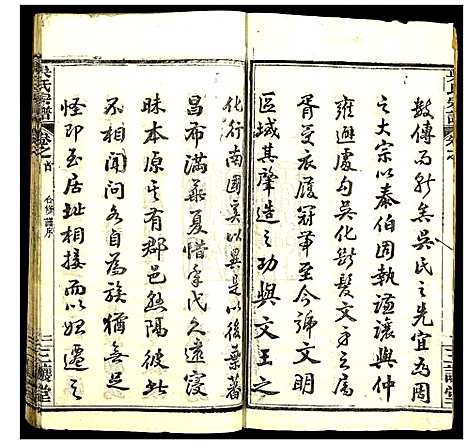 數傳而能矣吳氏之先宜為周
之大宗以泰伯固執謙讓與仲
雍遜處句吳化斷髮文身之屬
胥受衣履冠帶至今號文明
區域其肇造之功與文王之
化行南國奚以異是以後葉蕃
昌布滿華夏惜年代久遠寖
昧本原其有郡邑懸隔彼此
不相聞問各自為族猶無足
怪即至居址相接而以始遷之
吳氏宗譜
卷之首
合修譜序
三讓堂